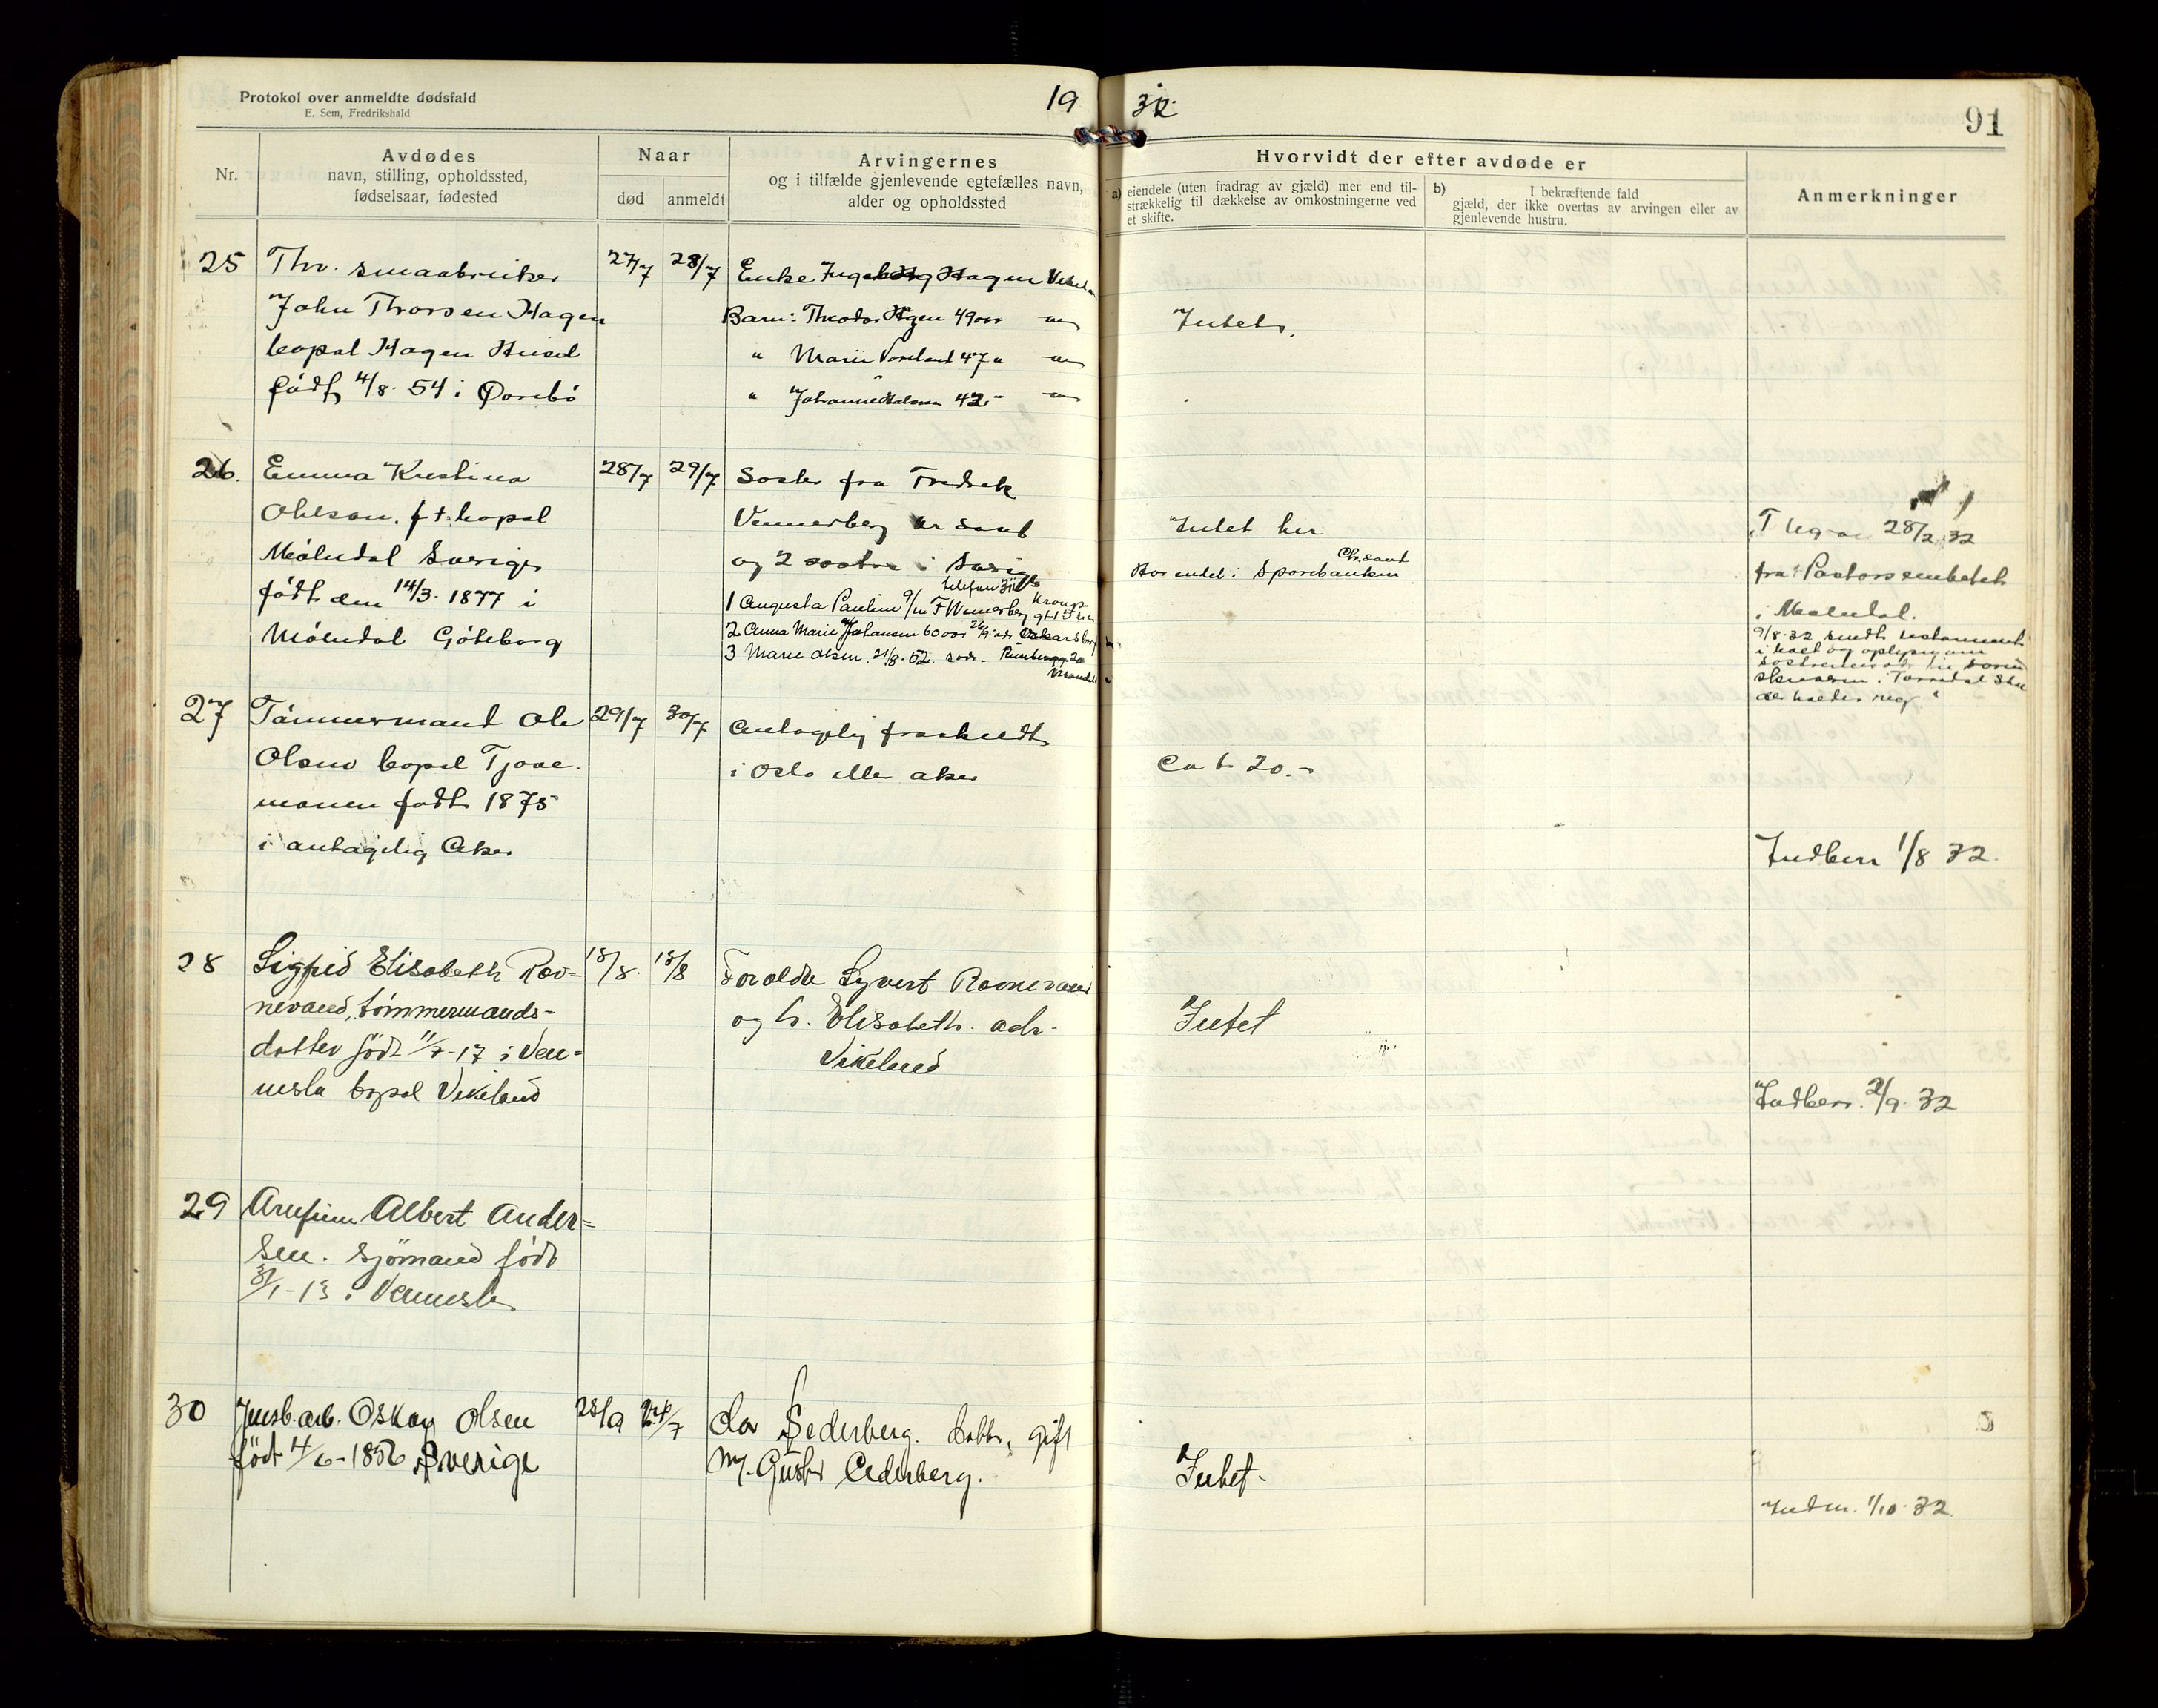 Protokol over anmeldte dødsfald
E. Sem, Fredrikshald
19 32.
91
Nr.
Avdødes
navn, stilling, opholdssted,
fødselsaar, fødested
Naar
død
anmeldt
Arvingernes
og i tilfælde gjenlevende egtefælles navn,
alder og opholdssted
Hvorvidt der efter avdøde er
a) eiendele (uten fradrag av gjæld) mer end til-
strækkelig til dækkelse av omkostningerne ved
et skifte.
b) I bekræftende fald
gjæld, der ikke overtas av arvingen eller av
gjenlevende hustru.
Anmerkninger
25 Fhv. smaabruker
John Thorsen Hagen
bopæl Hagen
født 4/8. 54 i
27/7 28/7
Enke Ingeborg Hagen
Barn: Theodor Hagen 49 aar
" Marie 47 "
" Johanne 42 -
Intet.
26. Emma Kristina
Ohlson. f t. bopæl
Mölndal Sverige
født den 14/3. 1877 i
Mölndal Göteborg
28/7 29/7
Søster fru Fredrik
Vennerberg Kr sand
og 2 søstre i Sverige
1 Augusta Pauline 9/11 F Wennerberg
2 Anna Marie Johansen 60 aar
3 Marie Olsen. 21/8. 52.
Intet her
Chr.sand
Har endel i Sparebanken
28/7 32
fra Pastorsembetet
i Mølndal.
9/8-32 sendt testamente
27 Tømmermand Ole
Olsen bopæl
moen født 1875
i antagelig Aker
29/7 30/7
Antagelig fraskilt
i Oslo eller Aker
Ca kr 20.-
Indber 1/8 32.
28 Sigfrid Elisabeth Rav-
nevand, tømmermands-
datter født 11/7-17 i Ven-
nesla bopæl Vikeland
18/8. 18/8
Foreldre Syvert Ravnevand
og h. Elisabeth. adr-
Vikeland
Intet
Indber. 2/9. 32
29 Arnfinn Albert Ander-
sen. Sjømand født
31/1-13 i Vennesla
30 Jernb.arb. Oskar Olsen
født 4/6-1856 Sverige
Sederberg. datter, gift
m/. Gustav Cederberg.
Intet-
1/10. 32.